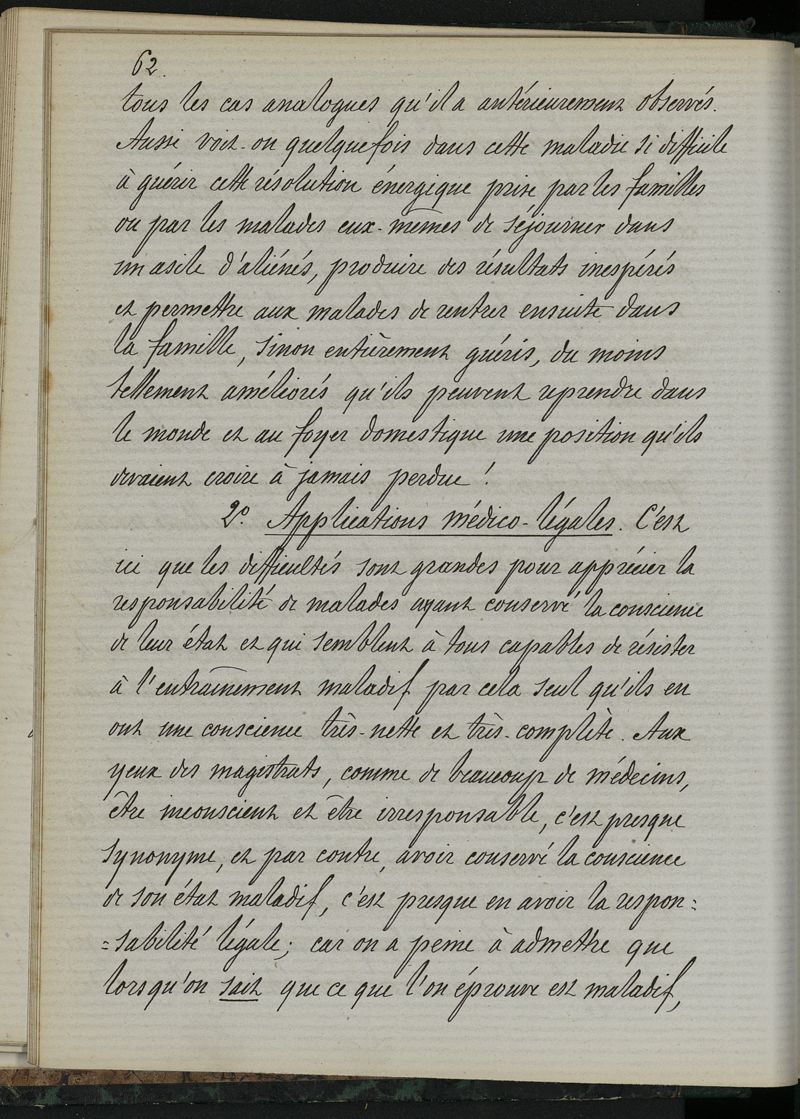 62.
tous les cas analogues qu'il a antérieurement observés.
Aussi voit-on quelquefois dans cette maladie si difficile
à guérir cette résolution énergique prise par les familles
ou par les malades eux-mêmes de séjourner dans
un asile d'aliénés, produire des résultats inespérés
et permettre aux malades de rentrer ensuite dans
la famille, sinon entièrement guéris, du moins
tellement améliorés qu'ils peuvent reprendre dans
le monde et au foyer domestique une position qu'ils
devaient croire à jamais perdue !
2°. Applications médico-légales. C'est
ici que les difficultés sont grandes pour apprécier la
responsabilité de malades ayant conservé la conscience
de leur état et qui semblent à tous capables de résister
à l'entraînement maladif par cela seul qu'ils en
ont une conscience très-nette et très-complète. Aux
yeux des magistrats, comme de beaucoup de médecins,
être inconscient et être irresponsable, c'est presque
synonyme, et par contre, avoir conservé la conscience
de son état maladif, c'est presque en avoir la respon=
=sabilité légale; car on a peine à admettre que
lorsqu'on sait que ce que l'on éprouve est maladif,